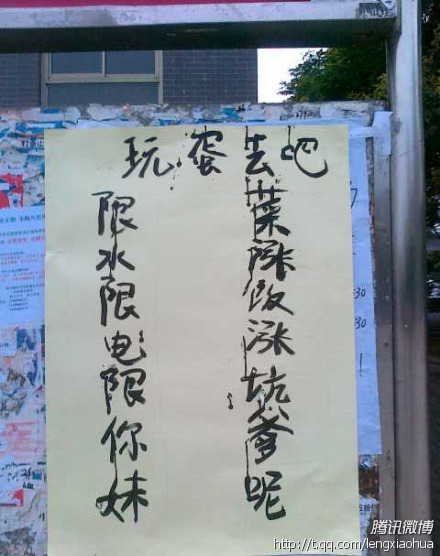 玩蛋去吧
菜涨饭涨坑爹呢
限水限电限你妹
腾讯微博
http://t.qq.com/lengxiaohua